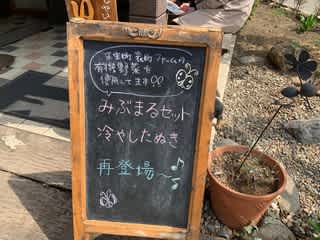 有機野菜を
使用してます!!
みぶまるセット
冷やしたぬき
再登場〜♪